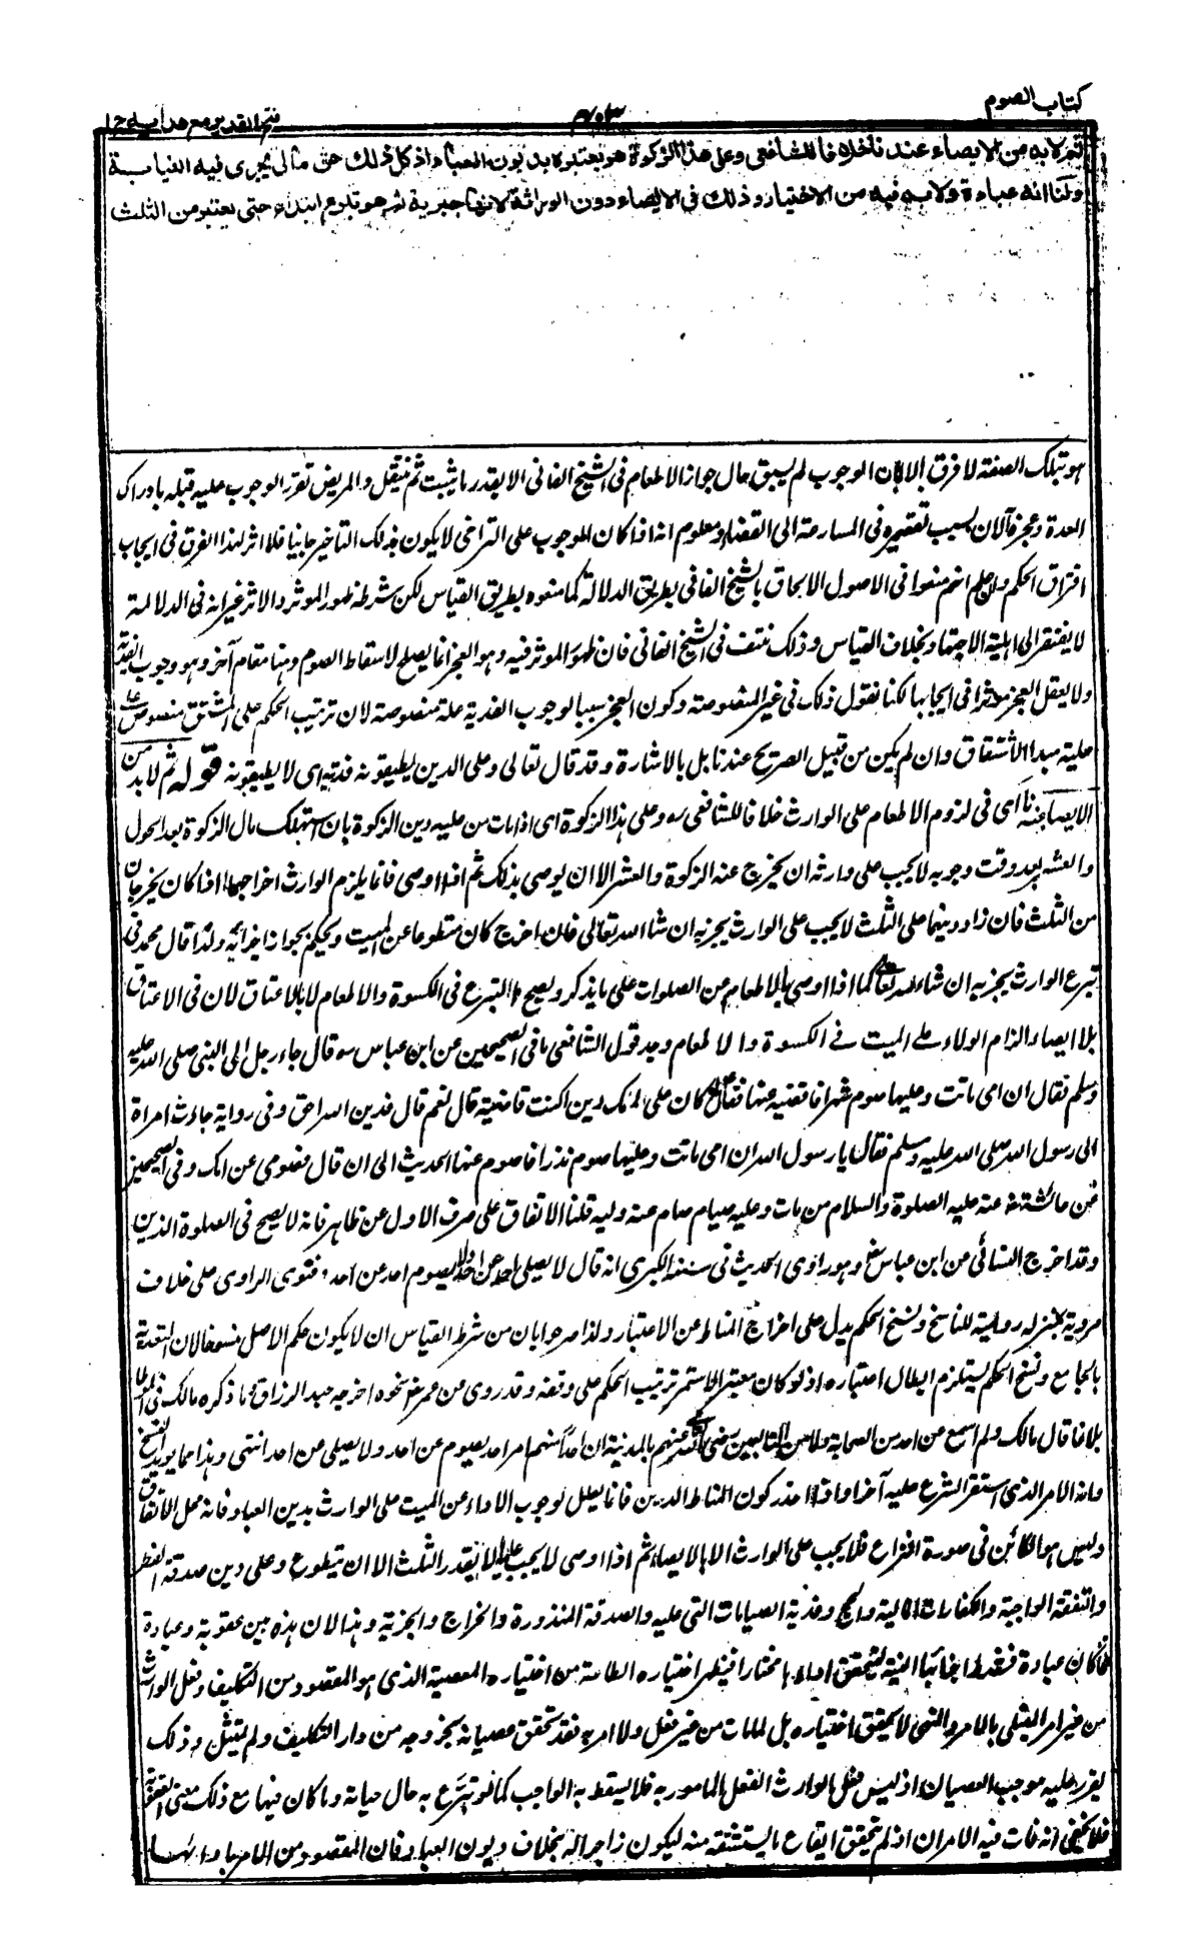 كتاب الصوم
فتح القدير مع هدايه ج ١
ثم لا بد من الايصاء عندنا خلافا للشافعى وعلى هذا الزكوة هو يعتبره بديون العباد اذ كل ذلك حق مالى يجرى فيه النيابة
ولنا انه عبادة ولا بد فيه من الاختيار وذلك فى الايصاء دون الوراثة لانها جبرية ثم هو تبرع ابتداء حتى يعتبر من الثلث
هو بتلك الصفة لا فرق الا بان الوجوب لم يسبق حال جواز الاطعام فى الشيخ الفانى الا بقدر ما يثبت ثم ينتقل والمريض تقرر الوجوب عليه قبله بادراك
العدة وعجزه الآن بسبب تقصيره فى المسارعة الى القضاء ومعلوم انه اذا كان الوجوب على التراخى لا يكون بذلك التاخير جانيا فلا اثر لهذا الفرق فى ايجاب
افتراق الحكم واعلم انهم منعوا فى الاصول الالحاق بالشيخ الفانى بطريق الدلالة كما منعوه بطريق القياس لكن شرطه ظهور الموثر والاثر غير انه فى الدلالة
لا يفتقر الى اهلية الاجتهاد بخلاف القياس وذلك منتف فى الشيخ الفانى فان ظهور الموثر فيه وهو العجز انما يصلح لاسقاط الصوم وهنا مقام آخر وهو وجوب الفدية
ولا يعقل العجز موثرا فى ايجابها لكنا نقول ذلك فى غير المنصوصة وكون العجز سببا لوجوب الفدية علة منصوصة لان ترتيب الحكم على المشتق منصوص على
علية مبدا الاشتقاق وان لم يكن من قبيل الصريح عندنا بل بالاشارة وقد قال تعالى وعلى الذين يطيقونه فدية اى لا يطيقونه قوله ثم لا بد من
الايصاء عندنا اى فى لزوم الاطعام على الوارث خلافا للشافعى رح وعلى هذا الزكوة اى اذا مات من عليه دين الزكوة بان استهلك مال الزكوة بعد الحول
والعشر بعد وقت وجوبه لا يجب على وارثه ان يخرج عنه الزكوة والعشر الا ان يوصى بذلك ثم اذا اوصى فانما يلزم الوارث اخراجهما اذا كان يخرجان
من الثلث فان زاد دينهما على الثلث لا يجب على الوارث يجزيه ان شاء الله تعالى فان اخرج كان متطوعا عن الميت ويحكم بجواز اجزائه ولذا قال محمد فى
تبرع الوارث يجزيه ان شاء الله تعالى كما اذا اوصى بالاطعام عن الصلوات على ما يذكر ويصح التبرع فى الكسوة والاطعام لا بالاعتاق لان فى الاعتاق
بلا ايصاء الزام الولاء على الميت فى الكسوة والاطعام وجه قول الشافعى ما فى الصحيحين عن ابن عباس رض قال جاء رجل الى النبى صلى الله عليه
وسلم فقال ان امى ماتت وعليها صوم شهر افاقضيه عنها فقال لو كان على امك دين اكنت قاضيه قال نعم قال فدين الله احق وفى رواية جاءت امراة
الى رسول الله صلى الله عليه وسلم فقالت يا رسول الله ان امى ماتت وعليها صوم نذر افاصوم عنها الحديث الى ان قال فصومى عن امك وفى الصحيحين
عن عائشة رض عنه عليه الصلوة والسلام من مات وعليه صيام صام عنه وليه قلنا الاتفاق على صرف الاول عن ظاهره فانه لا يصح فى الصلوة الدين
وقد اخرج النسائى عن ابن عباس رض وهو راوى الحديث فى سننه الكبرى انه قال لا يصلى احد عن احد ولا يصوم احد عن احد وفتوى الراوى على خلاف
مرويه بمنزلة روايته للناسخ ونسخ الحكم يدل على اخراج المناط عن الاعتبار ولذا صرحوا بان من شرط القياس ان لا يكون حكم الاصل منسوخا لان التعدية
بالجامع ونسخ الحكم يستلزم ابطال اعتباره اذ لو كان معتبرا لاستمر ترتيب الحكم على وفقه وقد روى عن عمر رض نحوه اخرجه عبد الرزاق وذكره مالك فى الموطا
بلاغا قال مالك ولم اسمع عن احد من الصحابة ولا من التابعين رضى الله عنهم بالمدينة ان احدا منهم امر احدا يصوم عن احد ولا يصلى عن احد انتهى وهذا مما يويد النسخ
وانه الامر الذى استقر الشرع عليه آخرا واذا اهدر كون المناط الدين فانما يعلل لوجوب الاداء عن الميت على الوارث بدين العباد فانه محل الاتفاق
وليس هو الكائن فى صورة النزاع فلا يجب على الوارث الا بالايصاء ثم اذا اوصى لا يجب عليه الا بقدر الثلث الا ان يتطوع وعلى دين صدقة الفطر
والنفقة الواجبة والكفارات المالية والحج وفدية الصيامات التى عليه والصدقة المنذورة والخراج والجزية وهذا لان هذه بين عقوبة وعبادة
فما كان عبادة فشرط اجزائها النية ليتحقق اداءها مختارا فيظهر اختياره الطاعة من اختياره المعصية الذى هو المقصود من التكليف وفعل الوارث
من غير امر المبتلى بالامر والنهى لا يحقق اختياره بل لما مات من غير فعل ولا امر به فقد تحقق عصيانه بخروجه من دار التكليف ولم يمتثل وذلك
يقرر عليه موجب العصيان اذ ليس فعل الوارث الفعل المامور به فلا يسقط به الواجب كما لو تبرع به حال حياته وما كان فيها مع ذلك معنى العقوبة
فلا يخفى انه فات فيه الامران اذ لم يتحقق ايقاع ما يستشقه منه ليكون زاجرا له بخلاف ديون العباد فان المقصود من الامر بها وادائها